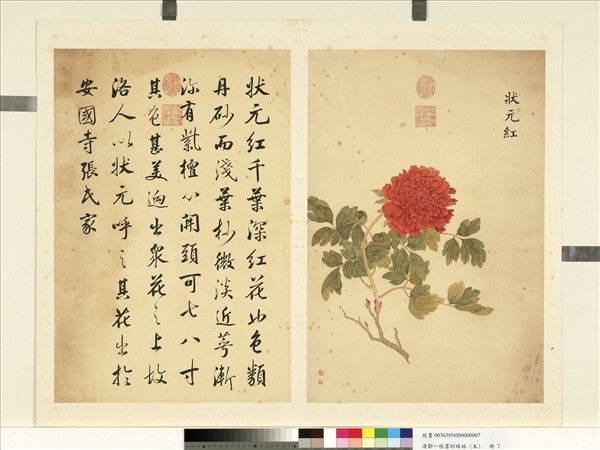 狀元紅
狀元紅千葉深紅花也色類
丹砂而淺葉杪微淡近萼漸
深有紫檀心開頭可七八寸
其色甚美迥出衆花之上故
洛人以狀元呼之其花出於
安國寺張氏家
故畫 003638N000000007
清鄒一桂墨妙珠林（未） 冊 7